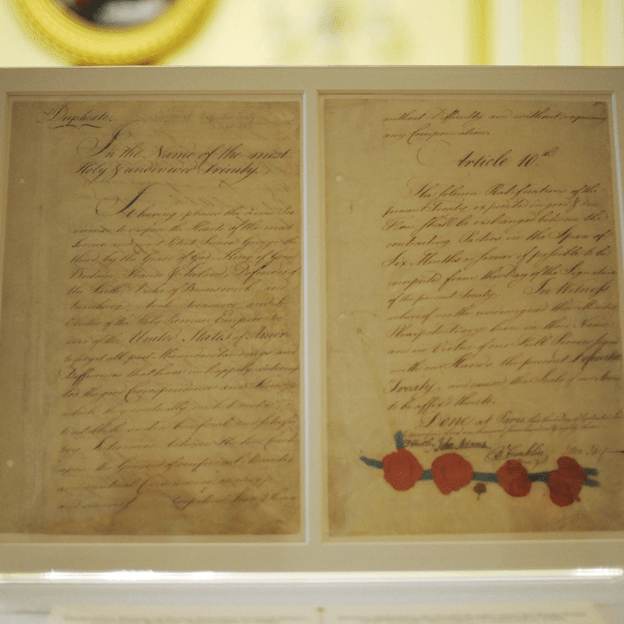 Duplicate.
In the Name of the most
Holy & undivided Trinity.
It having pleased the divine Pro
vidence to dispose the Hearts of the most
Serene and most Potent Prince George the
third by the Grace of God King of Great
Britain, France & Ireland, Defender of
the Faith, Duke of Brunswick and
Lunebourg, Arch Treasurer, and
Elector of the Holy Roman Empire &c
and of the United States of America
to forget all past Misunderstandings and
Differences that have unhappily interrup
ted the good Correspondence and Friendship
which they mutually wish to restore;
and
between the two Coun
upon the Ground of reciprocal Advantages
and mutual Convenience
and
without Difficulty and without requiring
any Compensation.
Article 10.th
The solemn Ratifications of the
present Treaty expedited in good & due
Form shall be exchanged between the
contracting Parties in the Space of
Six Months or sooner if possible to be
computed from the Day of the Signature
of the present Treaty. In Witness
whereof we the undersigned their Ministers
Plenipotentiary have in their Name
and in Virtue of our Full Powers signed
with our Hands the present Definitive
Treaty, and caused the Seals of our Arms
to be affix'd thereto.
Done at Paris, this third Day of September
John Adams. B Franklin John Jay